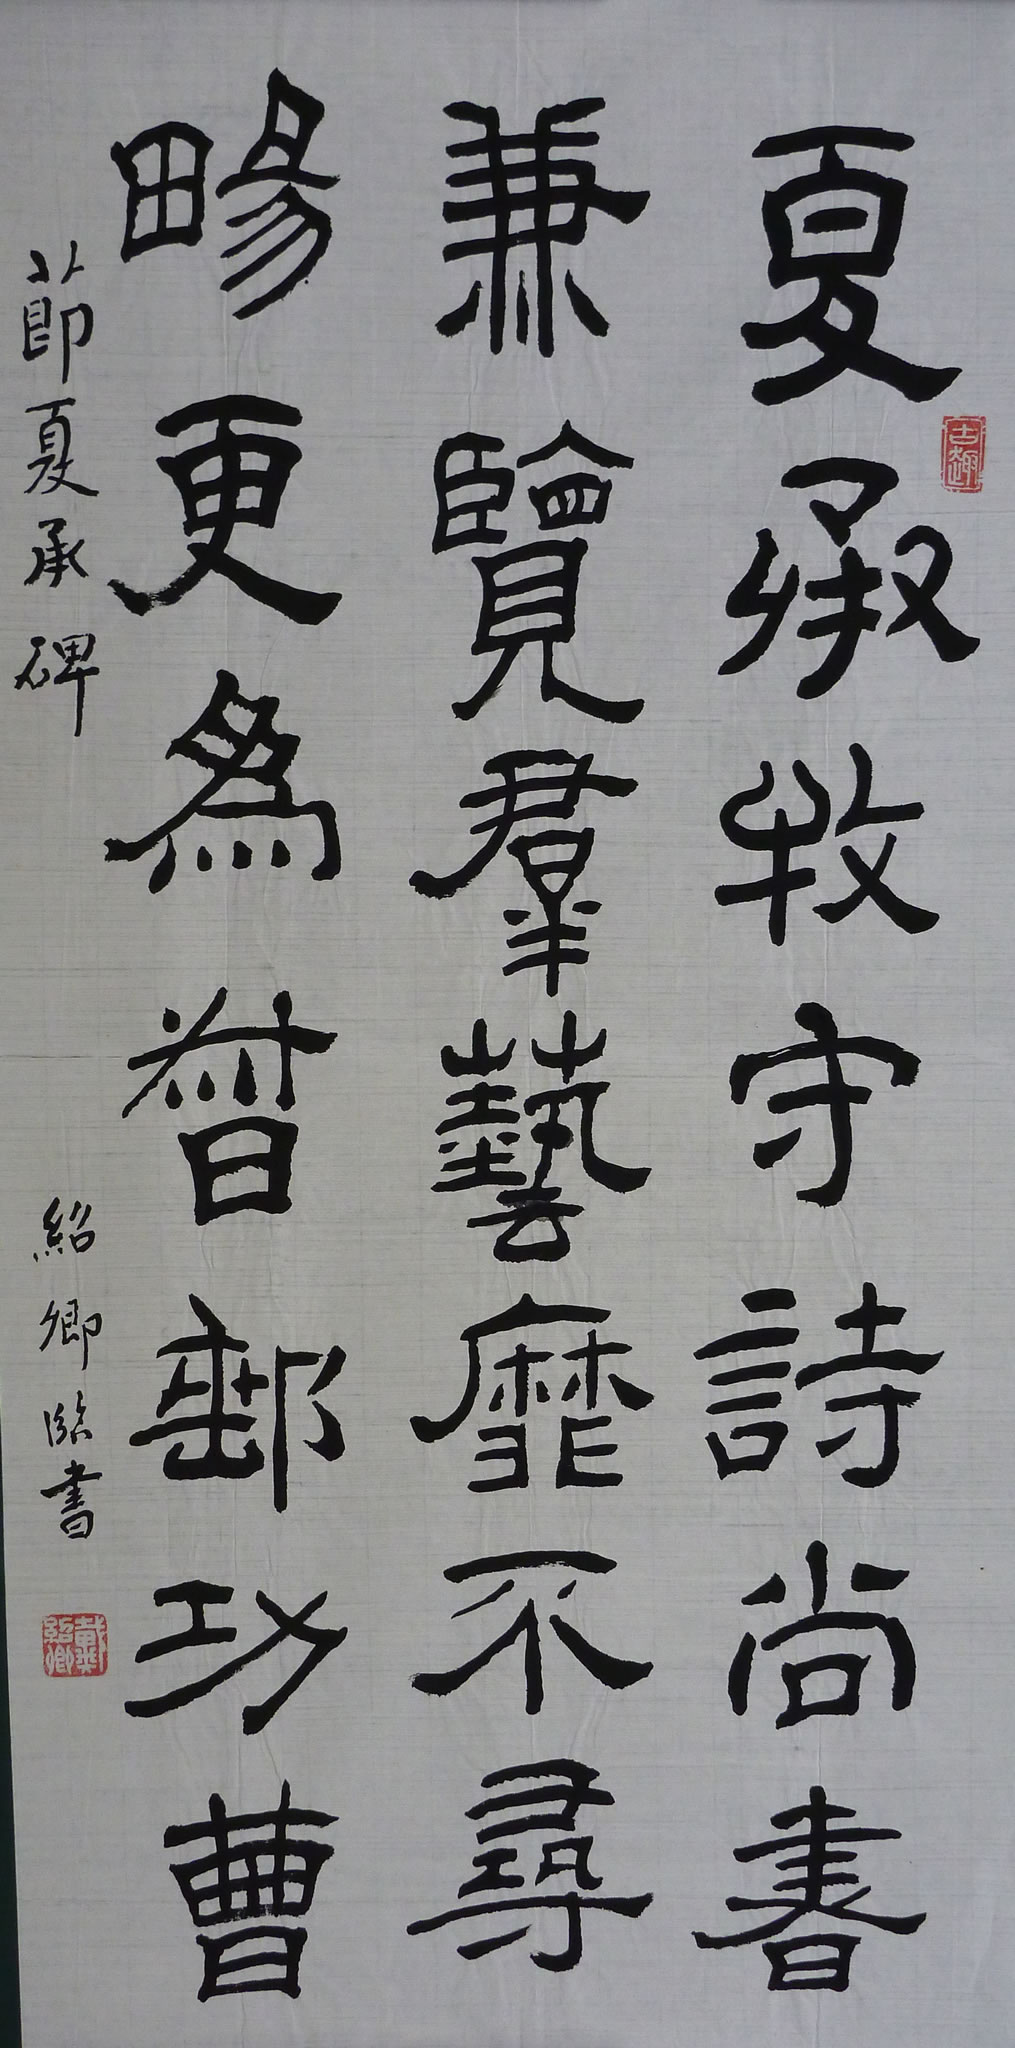 夏承牧守詩尚書
兼覽羣藝靡不尋
暘更為督郵功曹
節夏承碑
紹卿臨書
古趣
戴紹卿